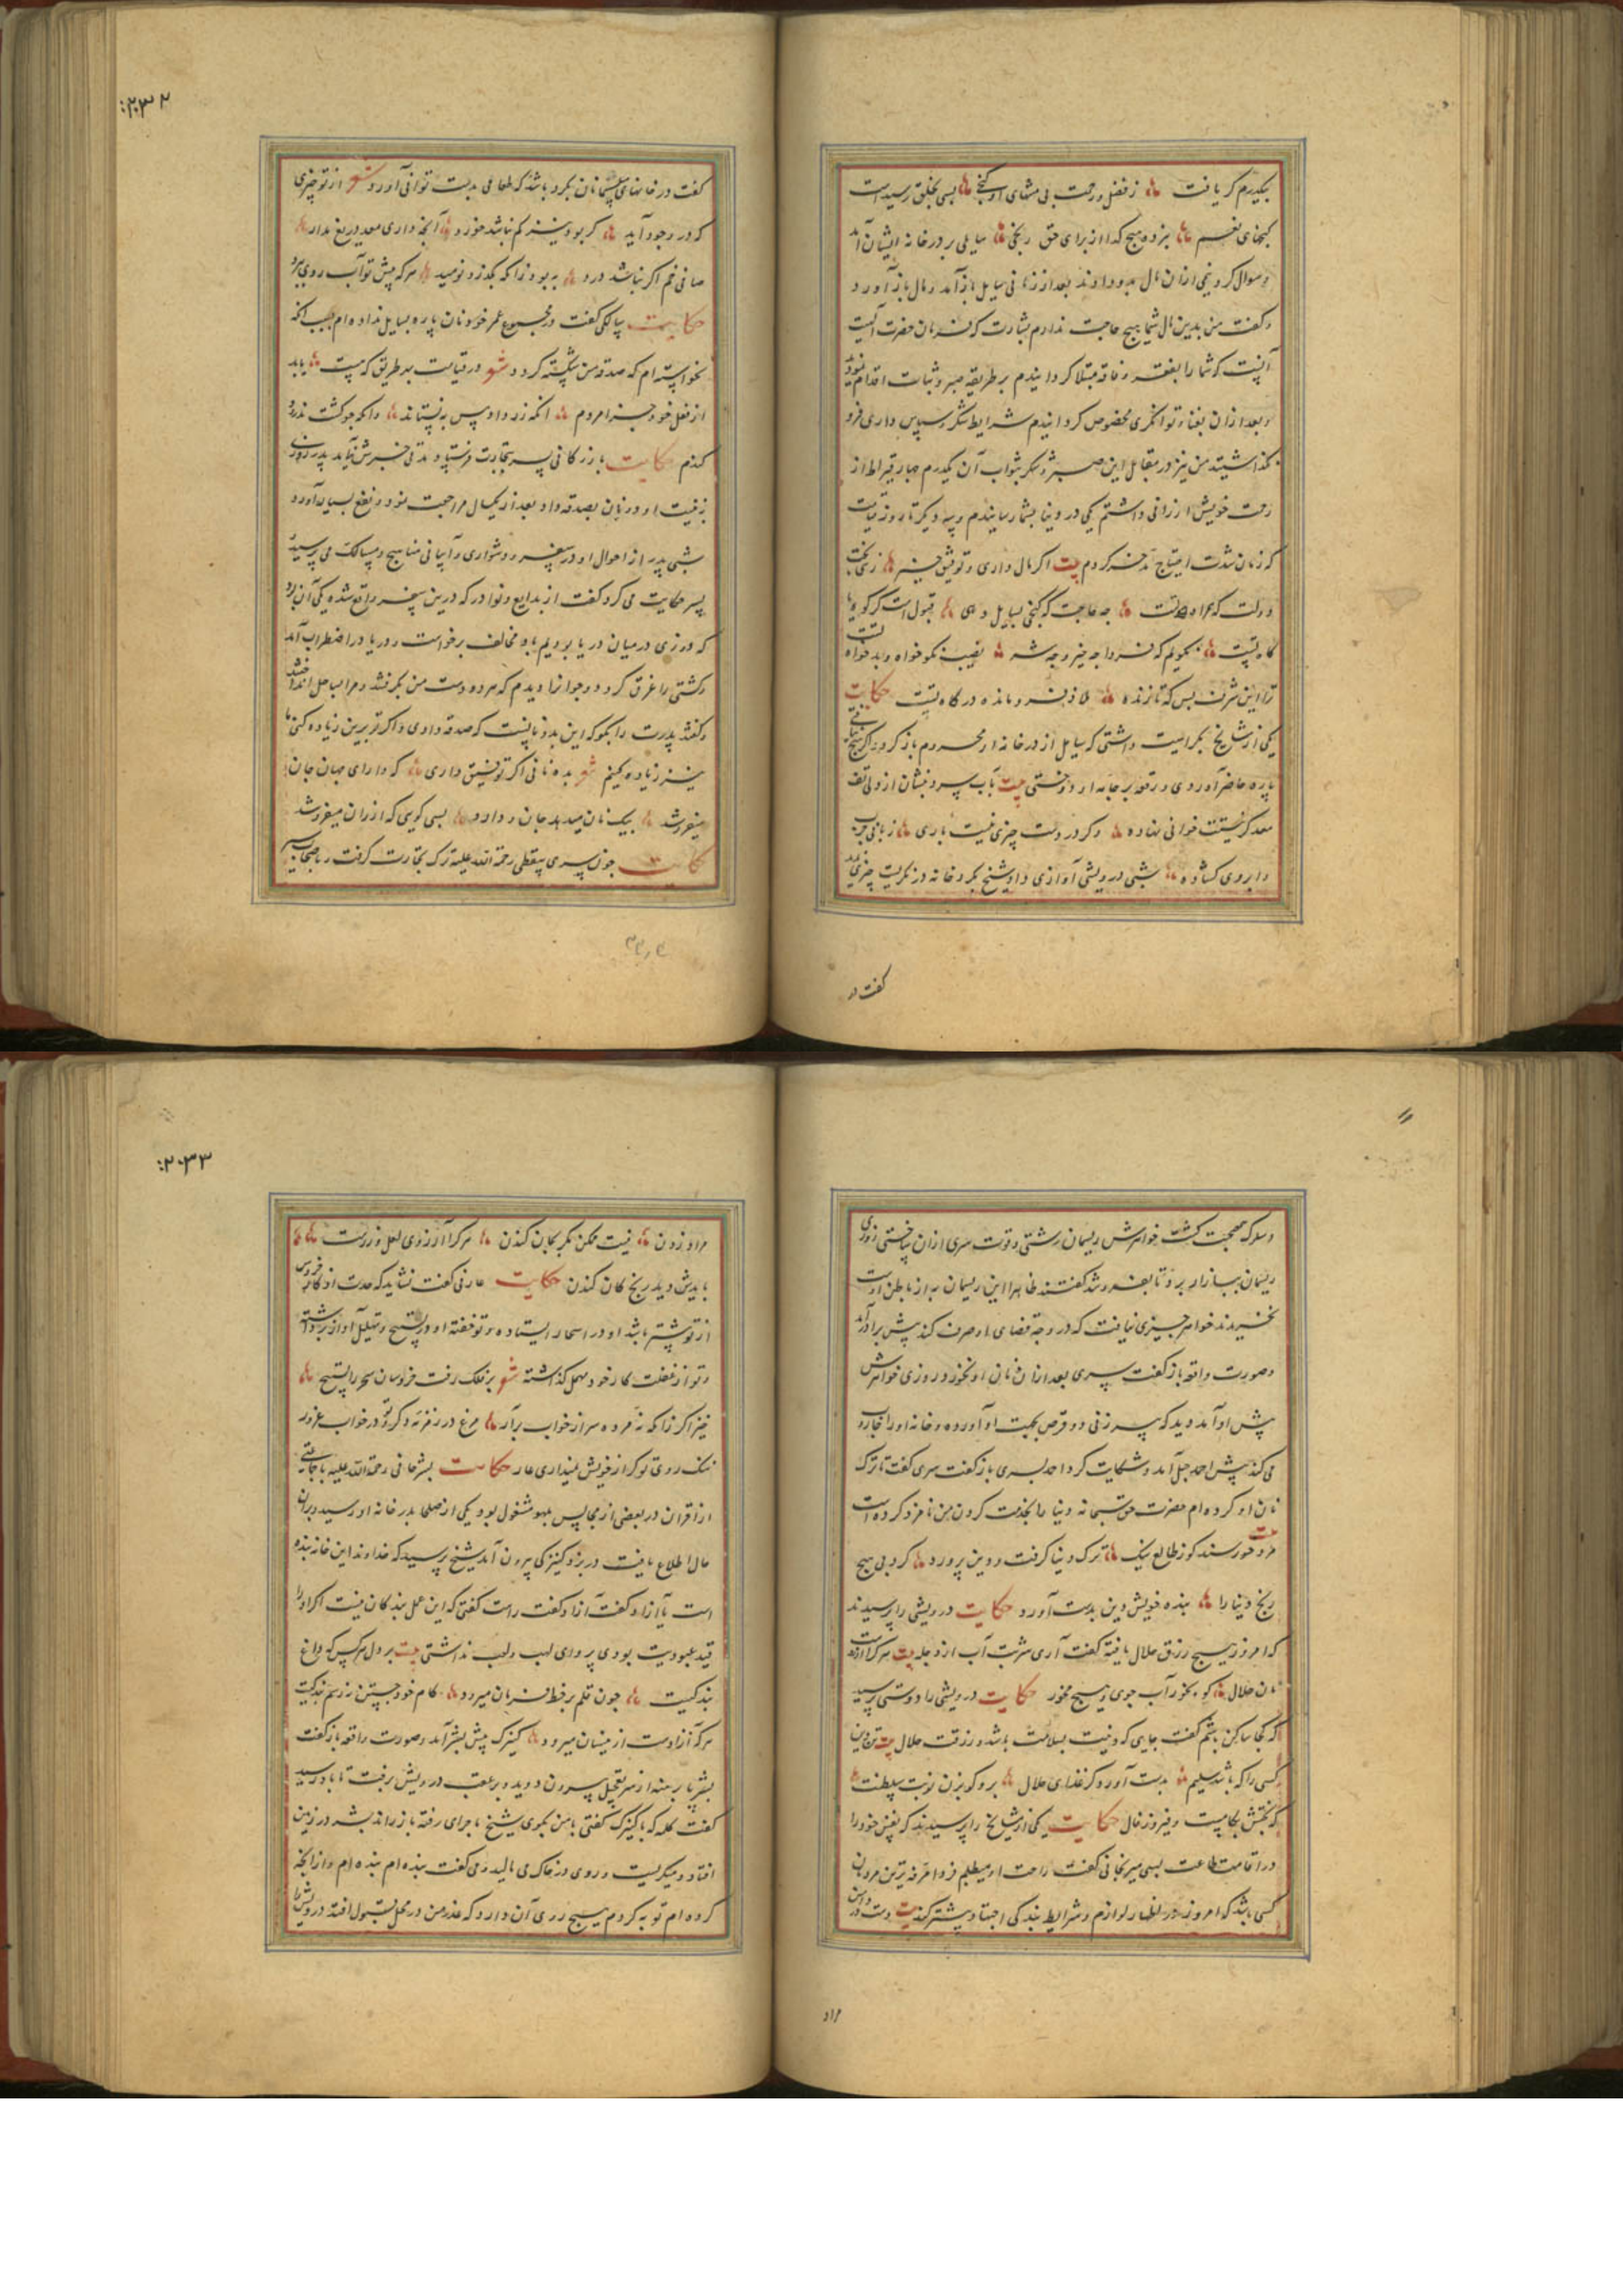 بیکدرم کر یافت ها ز فضل و رحمت بی منتهای او کنجی ها بسی بخلق رسیدست
کنجهای نعیم ها نبرده هیچ کدا از برای حق رنجی ها سایلی بر در خانه ایشان آمد
و سوال کرد نیمی ازان مال بدو دادند بعد از زمانی سایل باز آمد و مال باز آورد
و کفت من بدین مال شما هیچ حاجت ندارم بشارت که فرمان حضرت
آنست که شما را بفقر و فاقه مبتلا کردانیدم بر طریقه صبر و ثبات اقدام نمودید
و بعد ازان بغنا و توانکری مخصوص کردانیدم شرایط شکر و سپاس داری فرو
نکذاشتید من نیز در مقابل این صبر و شکر بثواب آن یکدرم چهار قیراط از
رحمت خویش ارزانی داشتم یکی در دنیا بشما رسانیدم و سه دیکر تا روز قیامت
که زمان شدت احتیاج ذخیره کردم بیت اکر مال داری و توفیق خیر ها زهی بخت
و دولت که همراه تست ها چه حاجت که کنجی بسایل دهی ها قبول است کر کوه یا
کاه تست ها نکویم که فردا چه خیر و چه شر ها نصیب نکوخواه و بدخواه تست
ترا این شرف بس که تا زنده ها فرومانده در کاه تست حکایت
یکی از مشایخ بکرامیت داشتی که سایل از در خانه او محروم باز کردد اکر هیچ نیافتی
پاره حاضر آوردی و رقعه بر جامه او دوختی بیت بآب سرد بنشان از دلی تف
معد کر نیستت خوانی نهاده ها و کر در دست چیزی نیست باری ها زبانی چرب
و ابروی کشاده ها شبی درویشی آوازی داد شیخ بکرد خانه در نکریست چیزی ندید
کفت در
:۲۰۳۲
کفت در خانهای مسلمانان بکرد باشد که طعامی بدست توانی آورد شعر از تو چیزی
که در وجود آید ها کر بود نیز کم نباشد خورد ها آنچه داری معد دریغ مدار ها
صافی خم اکر نباشد درد ها به بود زانکه بکذرد نومید ها هر که پیش تو آب روی برد
حکایت سالکی کفت در مجموع عمر خود نان پاره بسایل نداده ام بسبب آنکه
نخواسته ام که صدقه من شکسته کردد شعر در قیامت بهر طریق که هست ها یابد
از فعل خود جزا مردم ها آنکه زر داد مس نستاند ها وانکه جو کشت ندرود
کندم حکایت بازرکانی پسر بتجارت فرستاد مدتی خبرش نیامد پدر روزی
بنیت او دو نان بصدقه داد بعد از یکسال مراجعت نمود و نفع بسیار آورد
شبی پدر از احوال او در سفر و دشواری و آسانی مناهج و مسالک می پرسید
پسر حکایت می کرد کفت از بدایع و نوادر که درین سفر واقع شد یکی آن بود
که روزی در میان دریا بودیم باد مخالف برخواست و دریا در اضطراب آمد
و کشتی را غرق کرد دو جوانرا دیدم که هر دو دست من بکرفتند و مرا بساحل انداختند
و کفتند پدرت را بکو که این بدو نانست که صدقه دادی و اکر تو برین زیاده کنی ما
نیز زیاده کنیم شعر بده نانی اکر توفیق داری ها که دارای جهان جان
میفروشد ها بیک نان میدهد جان دارد ها بسی کویی که ارزان میفروشد
حکایت چون سری سقطی رحمة الله علیه ترک تجارت کرفت و باصحاب
و سلوک صحبت کشت خواهرش ریسمان رشتی و قوت سری ازان ساختی روزی
ریسمان ببازار برد تا بفروشد کفتند ظاهرا این ریسمان به از باطن اوست
نخریدند خواهر چیزی نیافت که در وجه قضای او صرف کند پیش برادر آمد
و صورت واقعه باز کفت سری بعد ازان نان او نخورد روزی خواهرش
پیش او آمد دید که پیر زنی دو قرص بجهت او آورده و خانه او را جاروب
می کند پیش احمد حنبل آمد و شکایت کرد احمد بسری باز کفت سری کفت تا ترک
نان او کرده ام حضرت حق سبحانه دنیا را بخدمت کردن من نامزد کرده است بیت
مرد خورسند کو ز طالع نیک ها ترک دنیا کرفت و دین پرورد ها کرد بی هیچ
رنج دنیا را ها بنده خویش و دین بدست آورد حکایت درویشی را پرسیدند
که امروز هیچ رزق حلال یافته کفت آری شربت آب از دجله بیت هر کرا آرزوست
نان حلال ها کو بخور آب جوی و هیچ مخور حکایت درویشی را دوستی پرسید
که کجا ساکن باشم کفت جایی که دینت بسلامت باشد و رزقت حلال بیت تن و دین
کسی را که باشد سلیم ها بدست آورد کر غذای حلال ها برو کو بزن نوبت سلطنت ها
که بختش بکامست و فیروز فال حکایت یکی از مشایخ را پرسیدند که نفس خود را
در اقامت طاعت بسی میرنجانی کفت راحت او میطلبم فردا مرفه ترین مردمان
کسی باشد که امروز در اظهار لوازم و شرایط بندکی اجتهاد بیشتر کند بیت دست در دامن
مراد
:۲۰۳۳
مراد زدن ها نیست ممکن مکر بجان کندن ها هر کرا آرزوی لعل و زرست ها
بایدش دید رنج کان کندن حکایت عارفی کفت نشاید که همت از خروس
از تو بیشتر باشد او در اسحار ایستاده و تو خفته او در تسبیح و تهلیل آواز برداشته
و تو از غفلت کار خود مهمل کذاشته شعر بر فلک رفت خروسان سحر را تسبیح ها
خیز اکر زانکه نه مرده سر از خواب برآر ها مرغ در زمزمه و کر تو در خواب غرور
ننک روی تو کر از خویش نمیداری عار حکایت بشر حافی رحمة الله علیه با جماعتی
از اقران در بعضی از مجالس بلهو مشغول بود یکی از صلحا بدر خانه او رسید و بران
حال اطلاع یافت در بزد کنیزکی بیرون آمد شیخ پرسید که خداوند این خانه بنده
است یا آزاد کفت آزاد کفت راست کفتی که این عمل بندکان نیست اکر او را
قید عبودیت بودی پروای لهب و لعب نداشتی بیت بر دل هر کس که داغ
بندکیست ها چون قلم بر خط فرمان میرود ها کام خود جستن نه رسم بندکیست
هر که آزادست ازینسان میرود ها کنیزک پیش بشر آمد و صورت واقعه باز کفت
بشر پای برهنه از سر تعجیل بیرون دوید و بر عقب درویش برفت تا باو رسید
کفت کلمه که با کنیزک کفتی با من بکوی شیخ ماجرای رفته باز راند بشر در زمین
افتاد و میکریست و روی در خاک می مالید و می کفت بنده ام بنده ام و از آنچه
کرده ام توبه کردم هیچ روی آن دارد که عذر من در محل قبول افتد درویش را